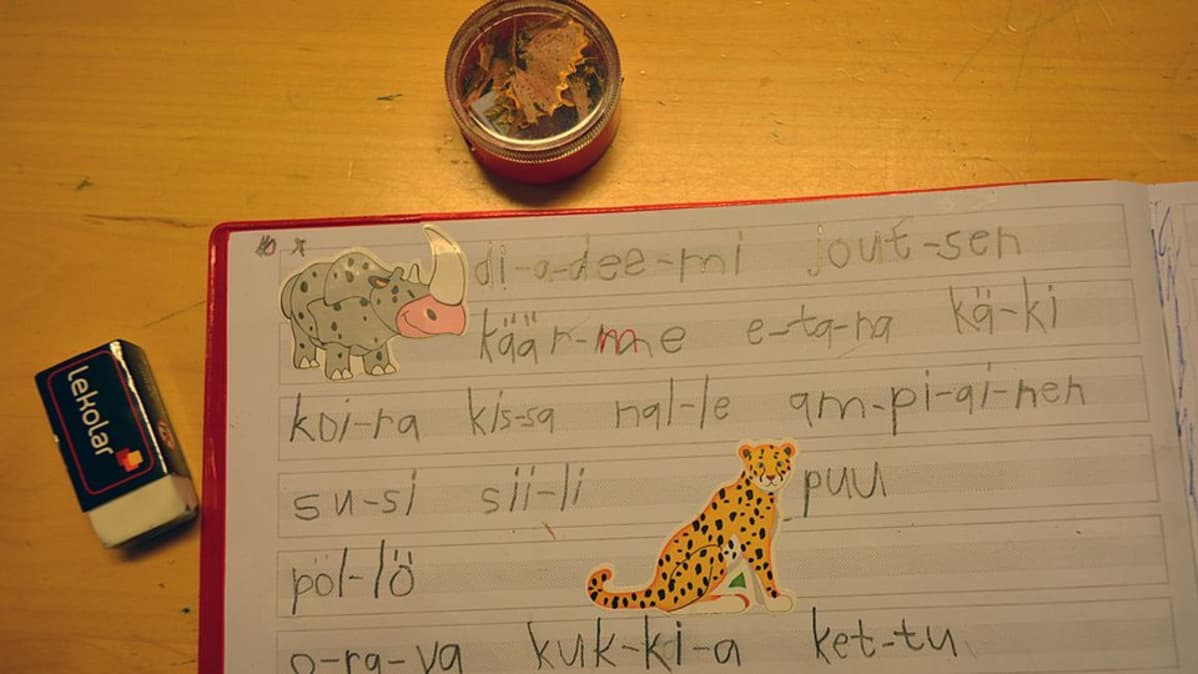 di-a-dee-mi jout-sen
käär-me e-ta-na kä-ki
koi-ra kis-sa nal-le am-pi-ai-nen
su-si sii-li puu
pöl-lö
o-ra-va kuk-ki-a ket-tu
lekolar